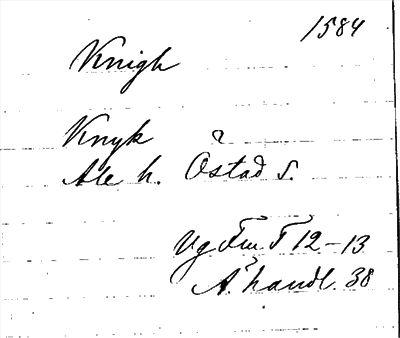 1584
Knigh
Knyk
Ale h. Östad s.
Vg Fm. T 12-13
Ä. handl. 38